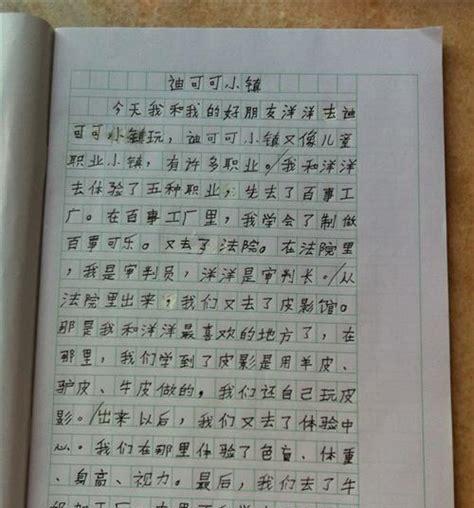 迪可可小镇
今天我和我的好朋友洋洋去迪
可可小镇玩，迪可可小镇又像儿童
职业小镇，有许多职业。我和洋洋
去体验了五种职业，先去了百事工
厂。在百事工厂里，我学会了制做
百事可乐。又去了法院。在法院里
，我是审判员，洋洋是审判长。从
法院里出来，我们又去了皮影馆。
那是我和洋洋最喜欢的地方了，在
那里，我们学到了皮影是用羊皮、
驴皮、牛皮做的，我们还自己玩皮
影。出来以后，我们又去了体验中
心。我们在那里体验了色盲、体重
、身高、视力。最后，我们去了牛